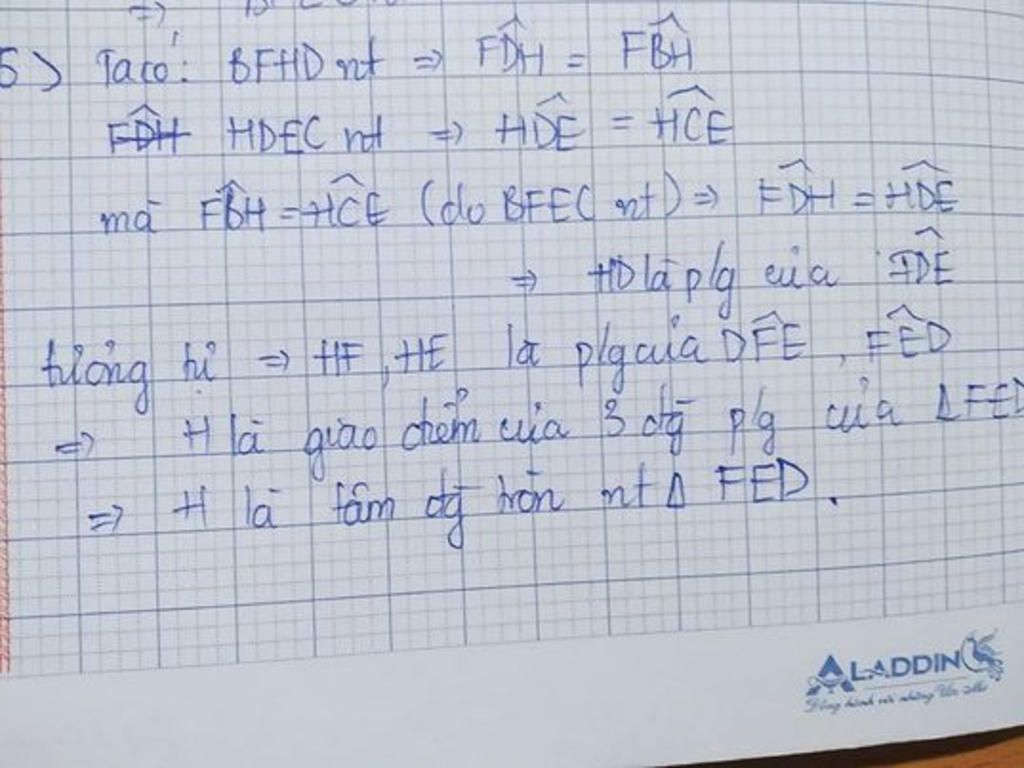 5) Ta có: BFHD nt => FDH^ = FBH^
HDEC nt => HDE^ = HCE^
mà FBH^ = HCE^ (do BFEC nt) => FDH^ = HDE^
=> HD là p/g của FDE^
tương tự => HF, HE là p/g của DFE^, FED^
=> H là giao điểm của 3 đg p/g của Δ FED
=> H là tâm đg tròn nt Δ FED.
ALADDIN
Đồng hành với những Ước Mơ